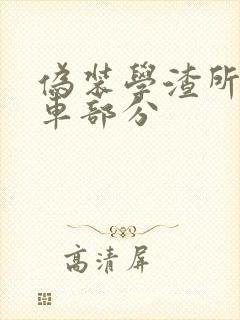 偽裝學渣所
車部分
高清屏